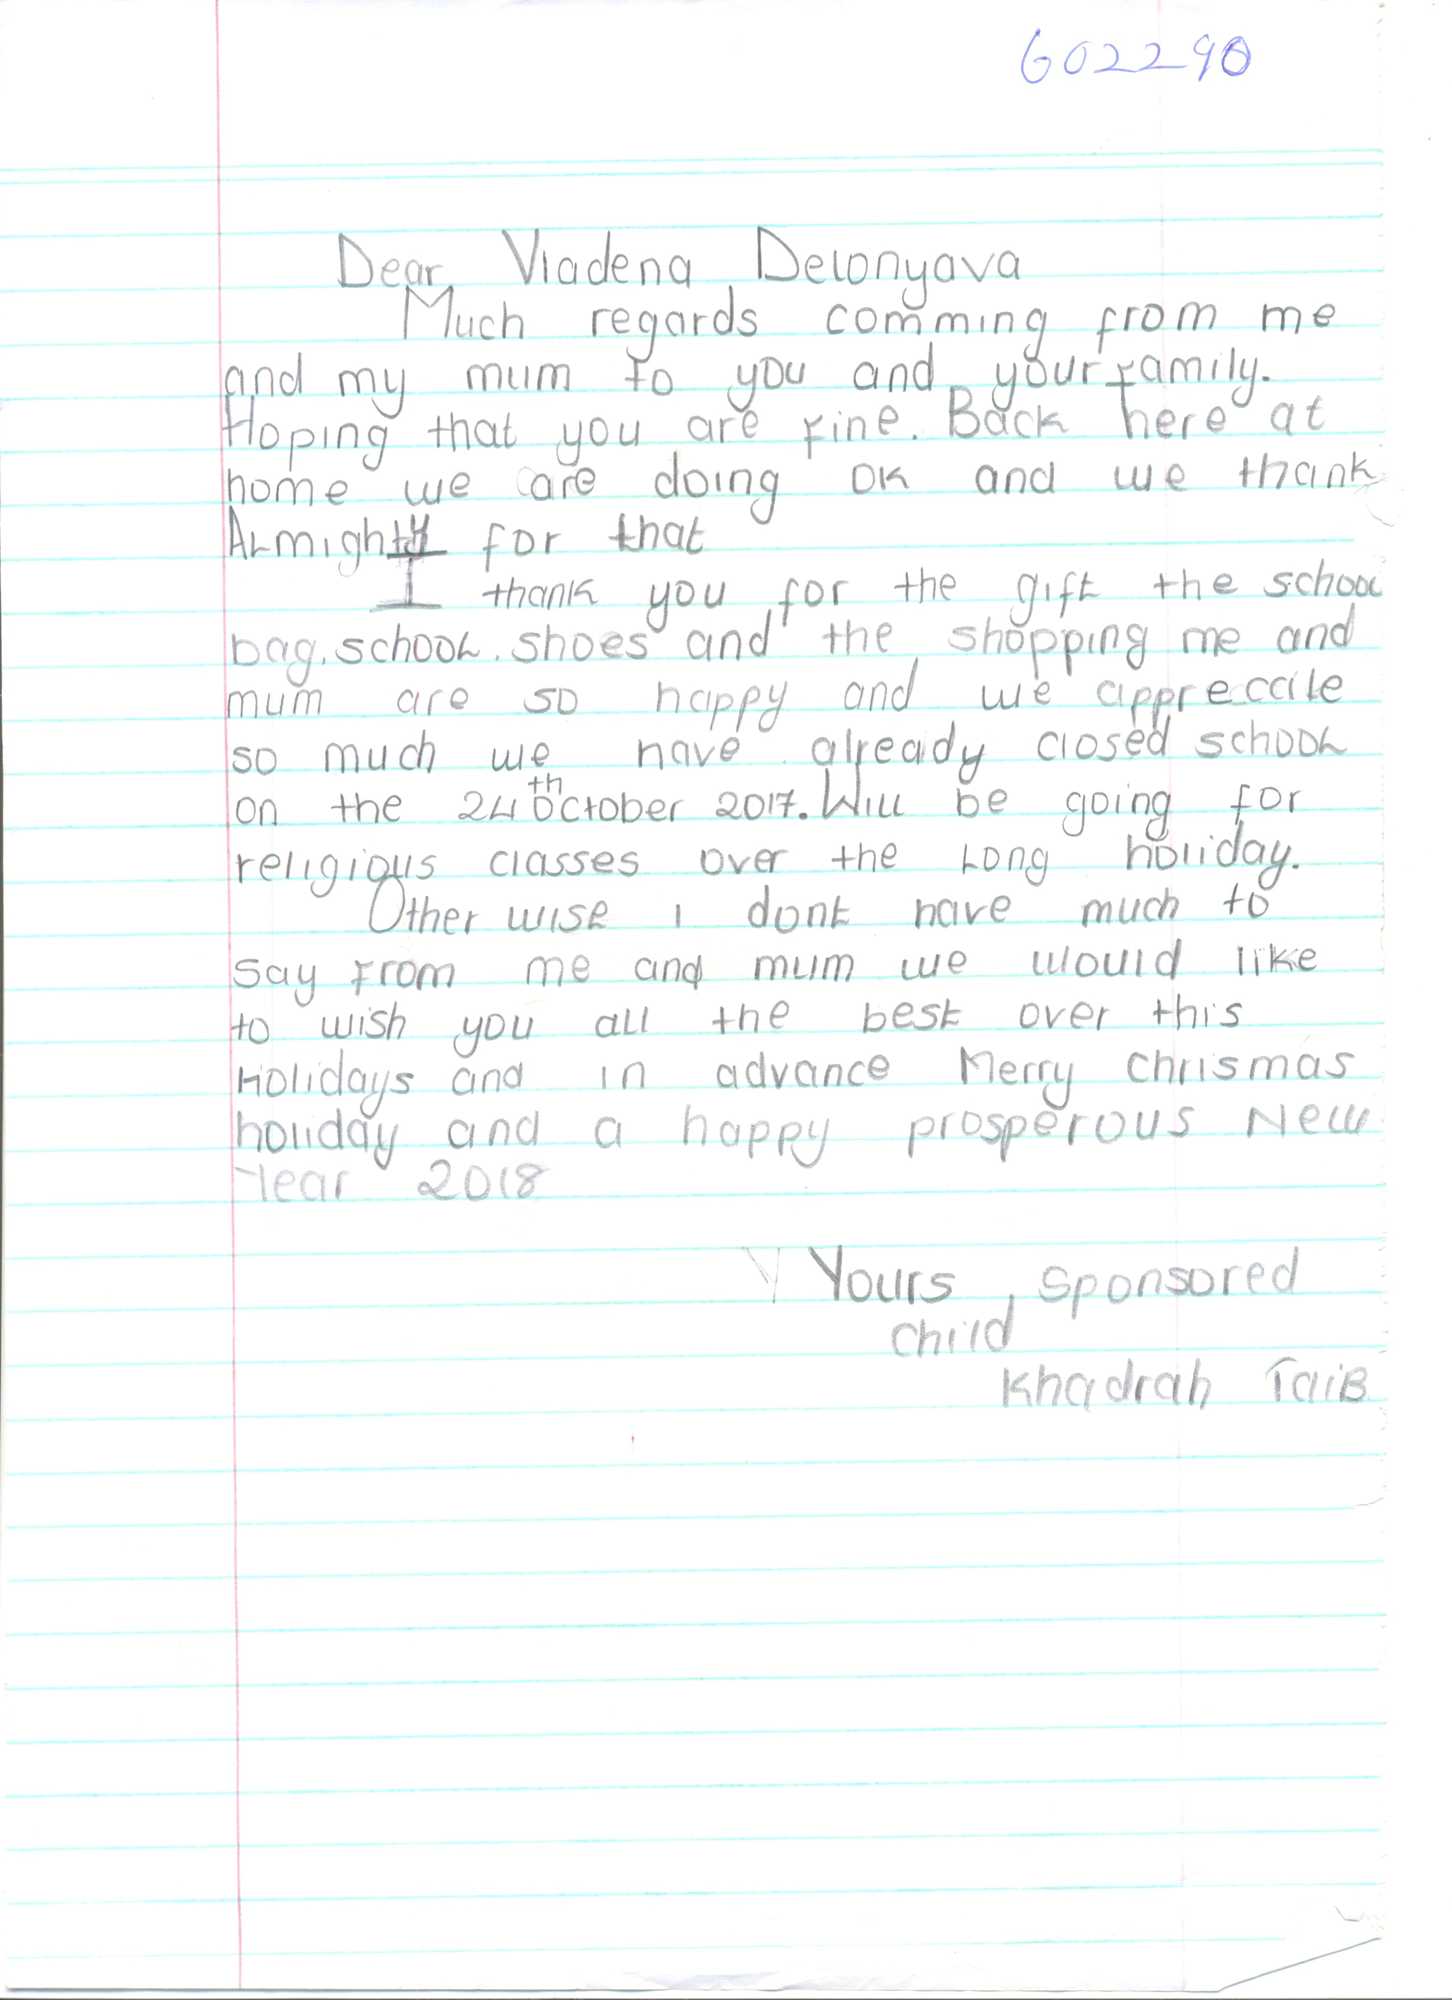 602290
Dear Vladena Delonyava
Much regards comming from me
and my mum to you and your family.
Hoping that you are fine. Back here at
home we are doing ok and we thank
Almighty for that
I thank you for the gift the school
bag, school. shoes and the shopping me and
mum are so happy and we appreccile
so much we have already closed school
on the 24th October 2017. Will be going for
religious classes over the Long holiday.
Other wise i dont have much to
say from me and mum we would like
to wish you all the best over this
Holidays and in advance Merry Chrismas
holiday and a happy prosperous New
Year 2018
Yours sponsored
child
Khadrah TaiB